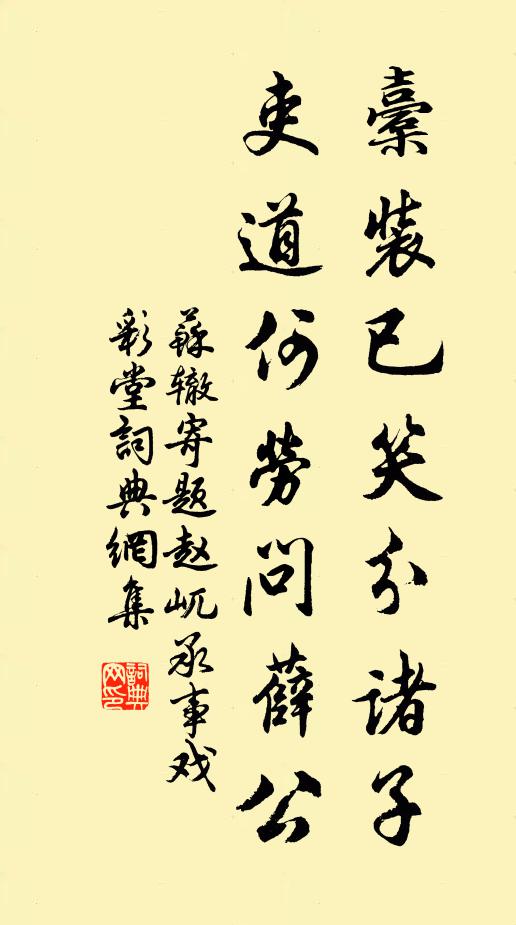 橐裝已笑分諸子
吏道何勞問薛公
蘇辙寄题赵屼承事戏
彩堂詞典網集
詞典
网印